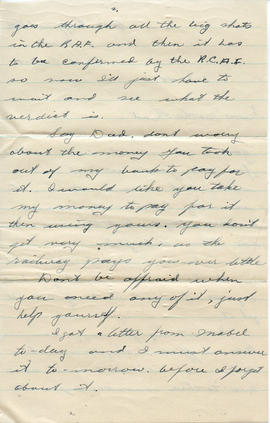 2.
goes through all the big shots
in the R.A.F. and then it has
to be confirmed by the R.C.A.F.
so now I'll just have to
wait and see what the
verdict is.
Say Dad, dont worry
about the money you took
out of my bank to pay for
it. I would like you take
my money to pay for it
then using yours. You don't
get very much, as the
railway pays you so little
Don't be affraid when
you need any of it, just
help yourself.
I got a letter from Mabel
to-day and I must answer
it to-morrow. before I forget
about it.